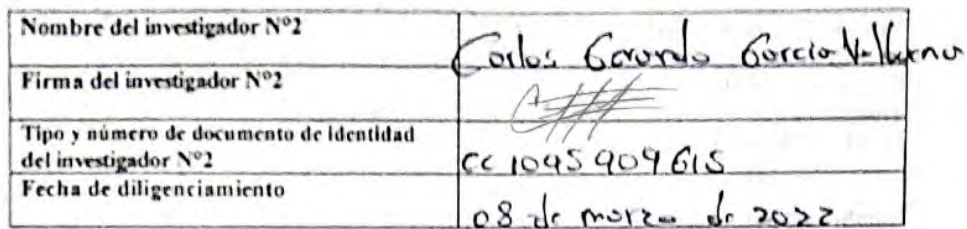 Nombre del investigador Nº2
Carlos Gerardo Garcia
Firma del investigador Nº2
Tipo y número de documento de identidad
del investigador Nº2
cc 1095 909 615
Fecha de diligenciamiento
08 de marzo de 2022